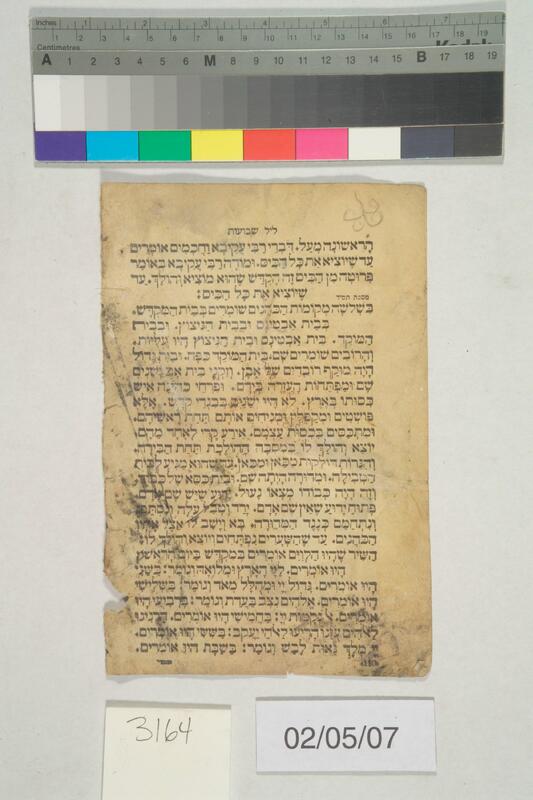 Inches 1 2 3 4 5 6 7 8
Centimetres 1 2 3 4 5 6 7 8 9 10 11 12 13 14 15 16 17 18 19
Kodak
A 1 2 3 4 5 6 M 8 9 10 11 12 13 14 15 B 17 18 19
ליל שבועות
הָרִאשׁוֹנָה מָעַל. דִּבְרֵי רַבִּי עֲקִיבָא וַחֲכָמִים אוֹמְרִים
עַד שֶׁיּוֹצִיא אֶת כָּל הַכִּיס. וּמוֹדֶה רַבִּי עֲקִיבָא בְּאוֹמֵר
פְּרוּטָה מִן הַכִּיס זֶה הֶקְדֵּשׁ שֶׁהוּא מוֹצִיא וְהוֹלֵךְ. עַד
שֶׁיּוֹצִיא אֶת כָּל הַכִּיס:
מסכת תמיד
בִּשְׁלֹשָׁה מְקוֹמוֹת הַכֹּהֲנִים שׁוֹמְרִים בְּבֵית הַמִּקְדָּשׁ.
בְּבֵית אַבְטִינָס וּבְבֵית הַנִּיצוֹץ. וּבְבֵית
הַמּוֹקֵד. בֵּית אַבְטִינָס וּבֵית הַנִּיצוֹץ הָיוּ עֲלִיּוֹת.
וְהָרוֹבִים שׁוֹמְרִים שָׁם. בֵּית הַמּוֹקֵד כִּפָּה. וּבַיִת גָּדוֹל
הָיָה מוּקָּף רוֹבָדִים שֶׁל אֶבֶן. וְזִקְנֵי בֵית אָב יְשֵׁנִים
שָׁם וּמַפְתְּחוֹת הָעֲזָרָה בְּיָדָם. וּפִרְחֵי כְהֻנָּה אִישׁ
כְּסוּתוֹ בָּאָרֶץ. לֹא הָיוּ יְשֵׁנִים בְּבִגְדֵי קֹדֶשׁ. אֶלָּא
פּוֹשְׁטִים וּמְקַפְּלִין וּמַנִּיחִים אוֹתָם תַּחַת רָאשֵׁיהֶם.
וּמִתְכַּסִּים בִּכְסוּת עַצְמָם. אֵירַע קֶרִי לְאֶחָד מֵהֶם.
יוֹצֵא וְהוֹלֵךְ לוֹ בִּמְסִבָּה הַהוֹלֶכֶת תַּחַת הַבִּירָה.
וְהַנֵּרוֹת דּוֹלְקוֹת מִכָּאן וּמִכָּאן. עַד שֶׁהוּא מַגִּיעַ לְבֵית
הַטְּבִילָה. וּמְדוּרָה הָיְתָה שָׁם. וּבֵית כִּסֵּא שֶׁל כָּבוֹד.
וְזֶה הָיָה כְּבוֹדוֹ מְצָאוֹ נָעוּל. יוֹדֵעַ שֶׁיֵּשׁ שָׁם אָדָם.
פָּתוּחַ יָדוּעַ שֶׁאֵין שָׁם אָדָם. יָרַד וְטָבַל עָלָה וְנִסְתַּפֵּג
וְנִתְחַמֵּם כְּנֶגֶד הַמְּדוּרָה. בָּא וְיָשַׁב לוֹ אֵצֶל אֶחָיו
הַכֹּהֲנִים. עַד שֶׁהַשְּׁעָרִים נִפְתָּחִים וְיוֹצֵא וְהוֹלֵךְ לוֹ:
הַשִּׁיר שֶׁהָיוּ הַלְוִיִּם אוֹמְרִים בַּמִּקְדָּשׁ בַּיּוֹם הָרִאשׁוֹן
הָיוּ אוֹמְרִים. לַיְיָ הָאָרֶץ וּמְלוֹאָהּ וְגוֹמֵר: בַּשֵּׁנִי
הָיוּ אוֹמְרִים. גָּדוֹל יְיָ וּמְהֻלָּל מְאֹד וְגוֹמֵר: בַּשְּׁלִישִׁי
הָיוּ אוֹמְרִים. אֱלֹהִים נִצָּב בַּעֲדַת וְגוֹמֵר: בָּרְבִיעִי הָיוּ
אוֹמְרִים. אֵל נְקָמוֹת יְיָ: בַּחֲמִישִׁי הָיוּ אוֹמְרִים. הַרְנִינוּ
לֵאלֹהִים עֻזֵּנוּ הָרִיעוּ לֵאלֹהֵי יַעֲקֹב: בַּשִּׁשִּׁי הָיוּ אוֹמְרִים.
יְיָ מָלָךְ גֵּאוּת לָבֵשׁ וְגוֹמֵר: בַּשַּׁבָּת הָיוּ אוֹמְרִים.
3164
02/05/07